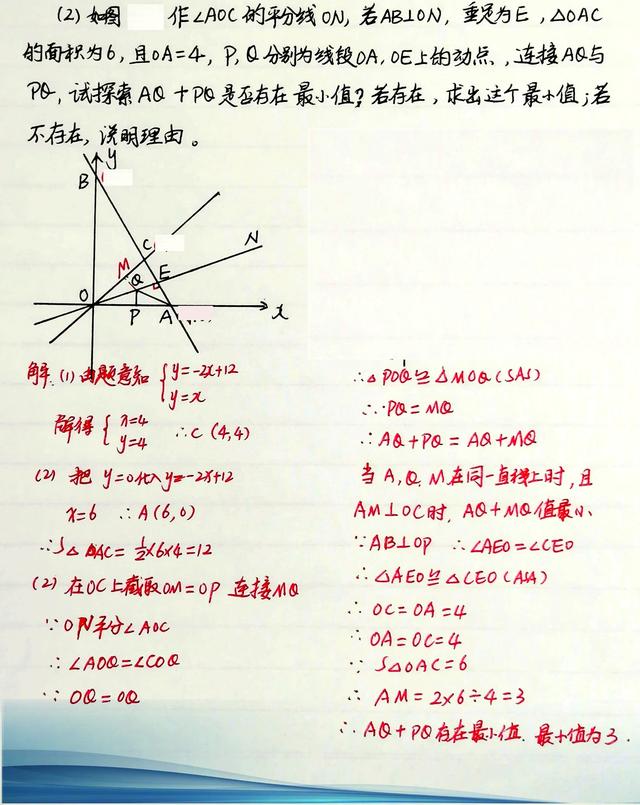 (2) 如图 作∠AOC的平分线ON,若AB⊥ON,垂足为E,△OAC
的面积为6,且OA=4,P,Q分别为线段OA,OE上的动点,连接AQ与
PQ,试探索AQ+PQ是否存在最小值?若存在,求出这个最小值;若
不存在,说明理由。
y
B
C
N
M
E
Q
O
P
A
x
解.(1) 由题意知 {y=-2x+12
y=x
解得 {x=4
y=4 ∴C (4,4)
(2) 把 y=0代入y=-2x+12
x=6 ∴A(6,0)
∴S△OAC=½×6×4=12
(2) 在OC上截取OM=OP 连接MQ
∵ON平分∠AOC
∴∠AOQ=∠COQ
∵OQ=OQ
∴△POQ≌△MOQ(SAS)
∴PQ=MQ
∴AQ+PQ=AQ+MQ
当A,Q,M在同一直线上时,且
AM⊥OC时,AQ+MQ值最小.
∵AB⊥OP ∴∠AEO=∠CEO
∴△AEO≌△CEO(ASA)
∴OC=OA=4
∴OA=OC=4
∵S△OAC=6
∴AM=2×6÷4=3
∴AQ+PQ存在最小值.最小值为3.